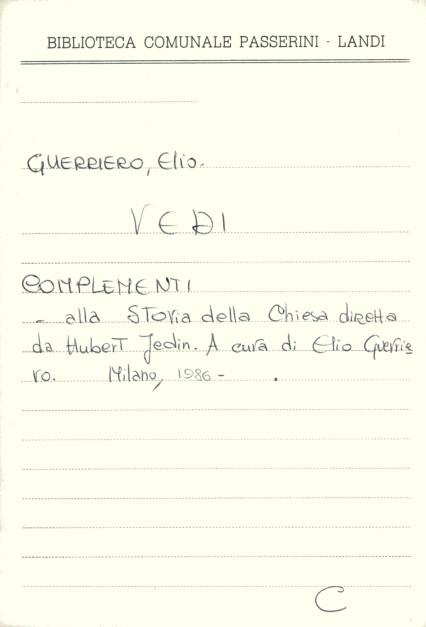 BIBLIOTECA COMUNALE PASSERINI - LANDI
GUERRIERO, Elio.
VEDI
COMPLEMENTI
- alla STORIA della Chiesa diretta
da Hubert Jedin. A cura di Elio Guerrie
ro. Milano, 1986 - .
C